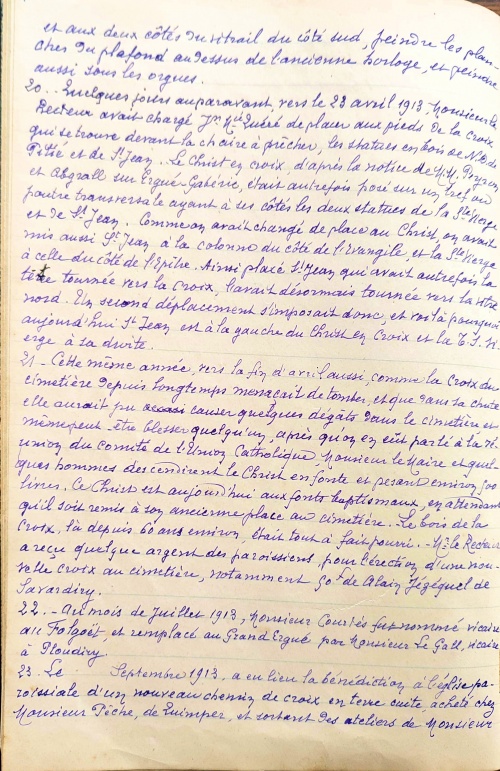 et aux deux côtés du vitrail du côté sud, peindre les plan-
ches du plafond au dessus de l'ancienne horloge, et peindre
aussi sous les orgues.
20. - Quelques jours auparavant, vers le 23 avril 1913, Monsieur le
Recteur avait chargé Jn Mie Quéré de placer aux pieds de la croix
qui se trouve devant la chaire à prêcher, les statues en bois de N.D. de
Pitié et de St Jean. Le Christ en croix, d'après la notice de M.M. Peyron
et Abgrall sur Ergué-Gabéric, était autrefois posé sur un tref ou
poutre transversale ayant à ses côtés les deux statues de la Ste Vierge
et de St Jean. Comme on avait changé de place au Christ, on avait
mis aussi St Jean à la colonne du côté de l'Evangile, et la Ste Vierge
à celle du côté de l'Epitre. Ainsi placé, St Jean qui avait autrefois la
tête tournée vers la croix, l'avait désormais tournée vers la vitre
nord. Un second déplacement s'imposait donc, et voilà pourquoi
aujourd'hui St Jean est à la gauche du Christ en Croix et la T. S. Vi
erge à sa droite.
21 - Cette même année, vers la fin d'avril aussi, comme la Croix du
cimetière depuis longtemps menaçait de tomber, et que dans sa chute
elle aurait pu causer quelques dégâts dans le cimetière et
même peut-être blesser quelqu'un, après qu'on en eût parlé à la ré-
union du Comité de l'Union Catholique, Monsieur le Maire et quel-
ques hommes descendirent le Christ en fonte et pesant environ 500
livres. Ce Christ est aujourd'hui aux fonts baptismaux, en attendant
qu'il soit remis à son ancienne place au cimetière. Le bois de la
Croix, là depuis 60 ans environ, était tout à fait pourri. - Mr le Recteur
a reçu quelque argent des paroissiens, pour l'érection d'une nou-
velle croix au cimetière, notamment 50f de Alain Jézéquel de
Lavardiry.
22. - Au mois de Juillet 1913, Monsieur Courtès fut nommé vicaire
au Folgoët, et remplacé au Grand Ergué par Monsieur Le Gall, vicaire
à Ploudiry.
23. Le Septembre 1913, a eu lieu la bénédiction à l'église pa-
roissiale d'un nouveau chemin de croix en terre cuite, acheté chez
Monsieur Pêche, de Quimper, et sortant des ateliers de Monsieur